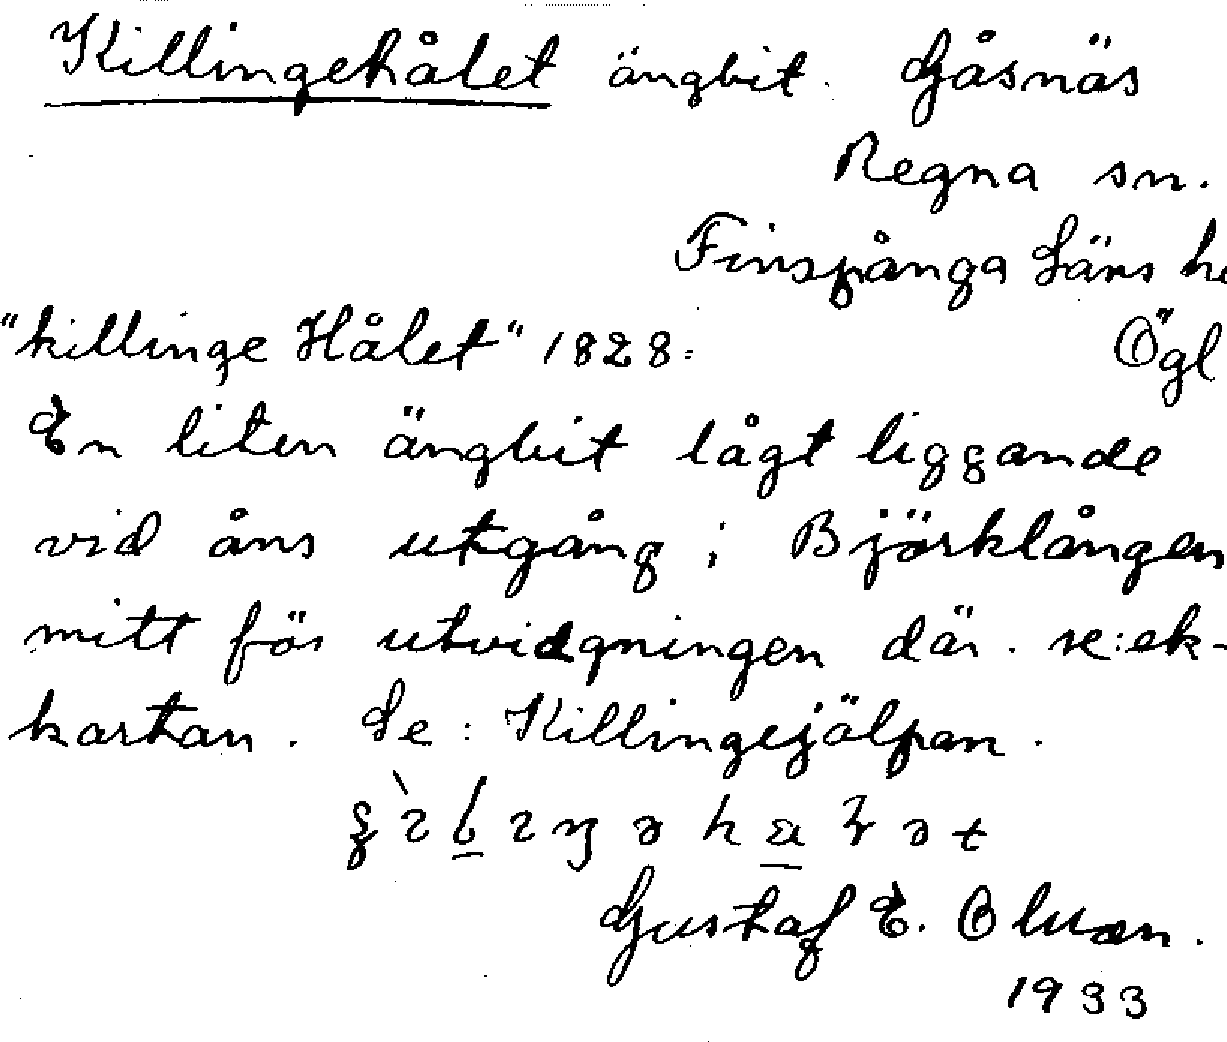 Killingehålet ängbit. Gåsnäs
Regna sn.
Finspånga Läns
"killinge Hålet" 1828. Ögl
En liten ängbit lågt liggande
vid åns utgång i Björklången
mitt för utvidgningen där. se: ek-
kartan. Se: Killingejälpan.
Gustaf E. Olsson.
1933